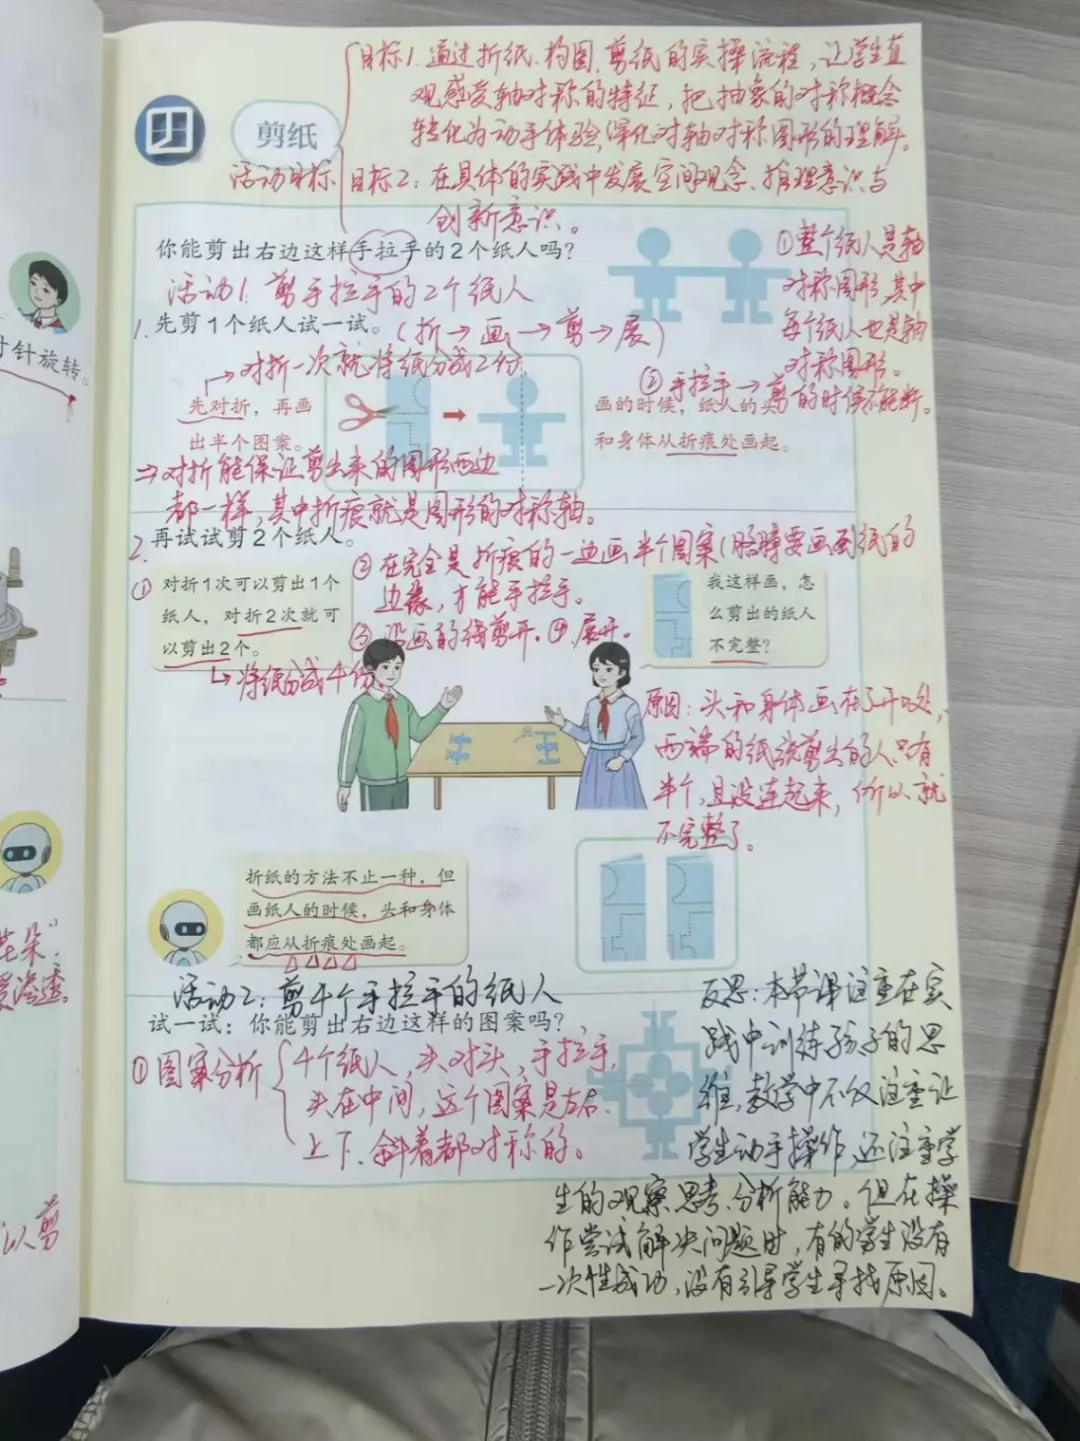 目标1.通过折纸、构图、剪纸的实操流程,让学生直
观感受轴对称的特征,把抽象的对称概念
转化为动手体验,深化对轴对称图形的理解。
剪纸
活动目标
目标2:在具体的实践中发展空间观念、推理意识与
创新意识。
你能剪出右边这样手拉手的2个纸人吗?
①整个纸人是轴
对称图形,其中
每个纸人也是轴
对称图形。
②手拉手→剪的时候不能断。
活动1.剪手拉手的2个纸人
1.先剪1个纸人试一试。(折→画→剪→展)
→对折一次就将纸分成2份
先对折,再画
出半个图案。
画的时候,纸人的头
和身体从折痕处画起。
⇒对折能保证剪出来的图形两边
都一样,其中折痕就是图形的对称轴。
2.再试试剪2个纸人。
①对折1次可以剪出1个
纸人,对折2次就可
以剪出2个。
↳将纸分成4份
②在完全是折痕的一边画半个图案(胳膊要画到纸的
边缘,才能手拉手。
③沿画的线剪开。④展开。
我这样画,怎
么剪出的纸人
不完整?
原因:头和身体画在了开口处,
两端的纸张剪出的人只有
半个,且没连起来,所以就
不完整了。
折纸的方法不止一种,但
画纸人的时候,头和身体
都应从折痕处画起。
活动2:剪4个手拉手的纸人
试一试:你能剪出右边这样的图案吗?
①图案分析
4个纸人,头对头,手拉手,
头在中间,这个图案是左右、
上下、斜着都对称的。
反思:本节课注重在实
践中训练孩子的思
维,教学中不仅注重让
学生动手操作,还注重学
生的观察、思考、分析能力。但在操
作尝试解决问题时,有的学生没有
一次性成功,没有引导学生寻找原因。
时针旋转。
花朵”
渗透。
以剪